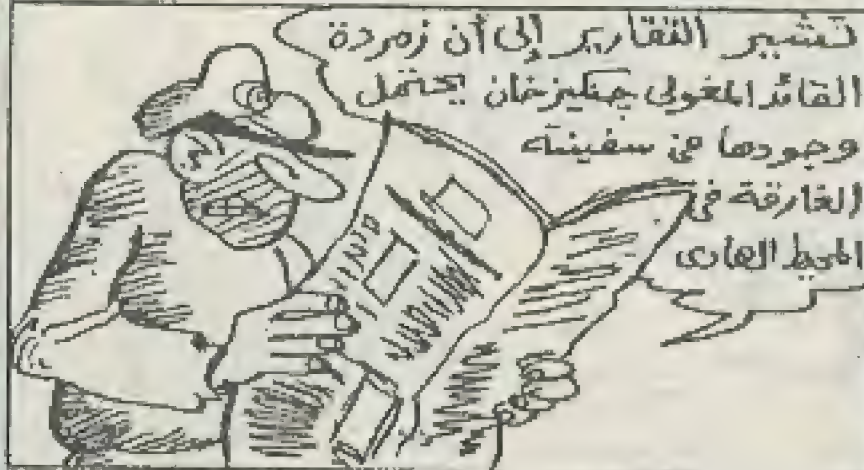 تشير التقارير إلى أن زمردة
القائد المغولى جنكيزخان يحتمل
وجودها فى سفينته
الغارقة فى
المحيط الهادى